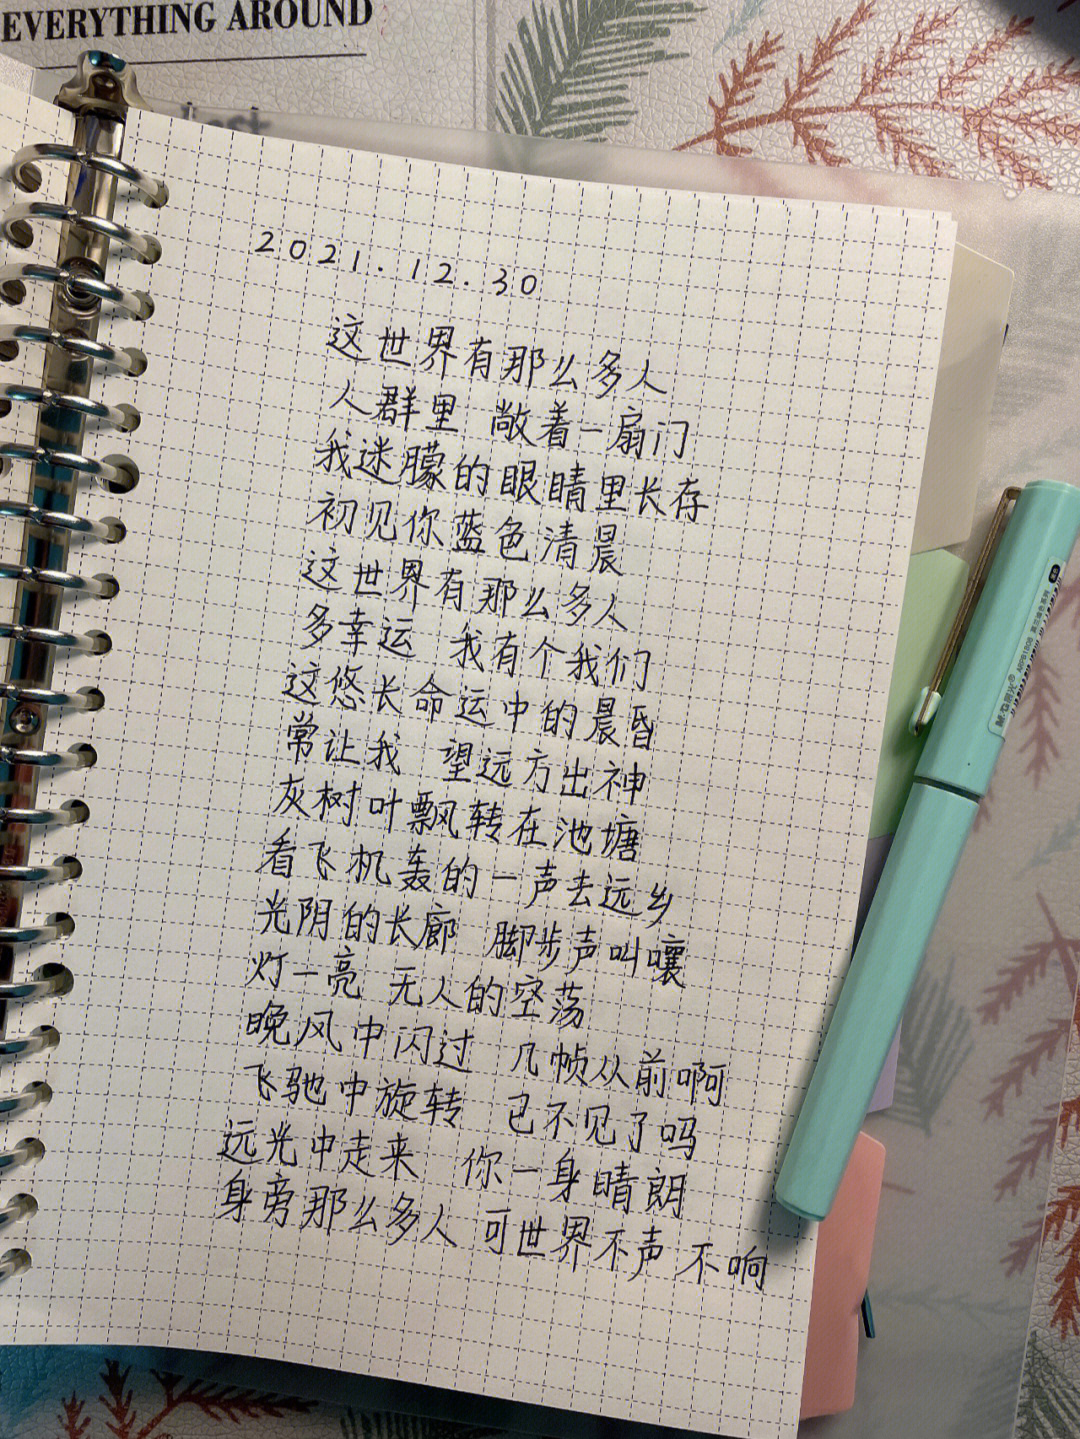 EVERYTHING AROUND
2021.12.30
这世界有那么多人
人群里 敞着一扇门
我迷朦的眼睛里长存
初见你蓝色清晨
这世界有那么多人
多幸运 我有个我们
这悠长命运中的晨昏
常让我 望远方出神
灰树叶飘转在池塘
看飞机轰的一声去远乡
光阴的长廊 脚步声叫嚷
灯一亮 无人的空荡
晚风中闪过 几帧从前啊
飞驰中旋转 已不见了吗
远光中走来 你一身晴朗
身旁那么多人 可世界不声 不响